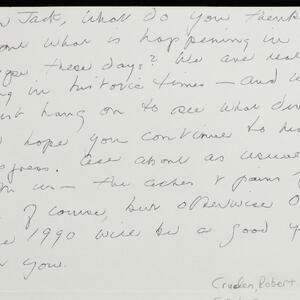 Jack, What do you think
what is happening in
these days? We are
in historic times — and
hang on to see what
hope you continue to
as usual
us — the aches & pains
of course, but otherwise
1990 will be a good
you.
Cruden, Robert